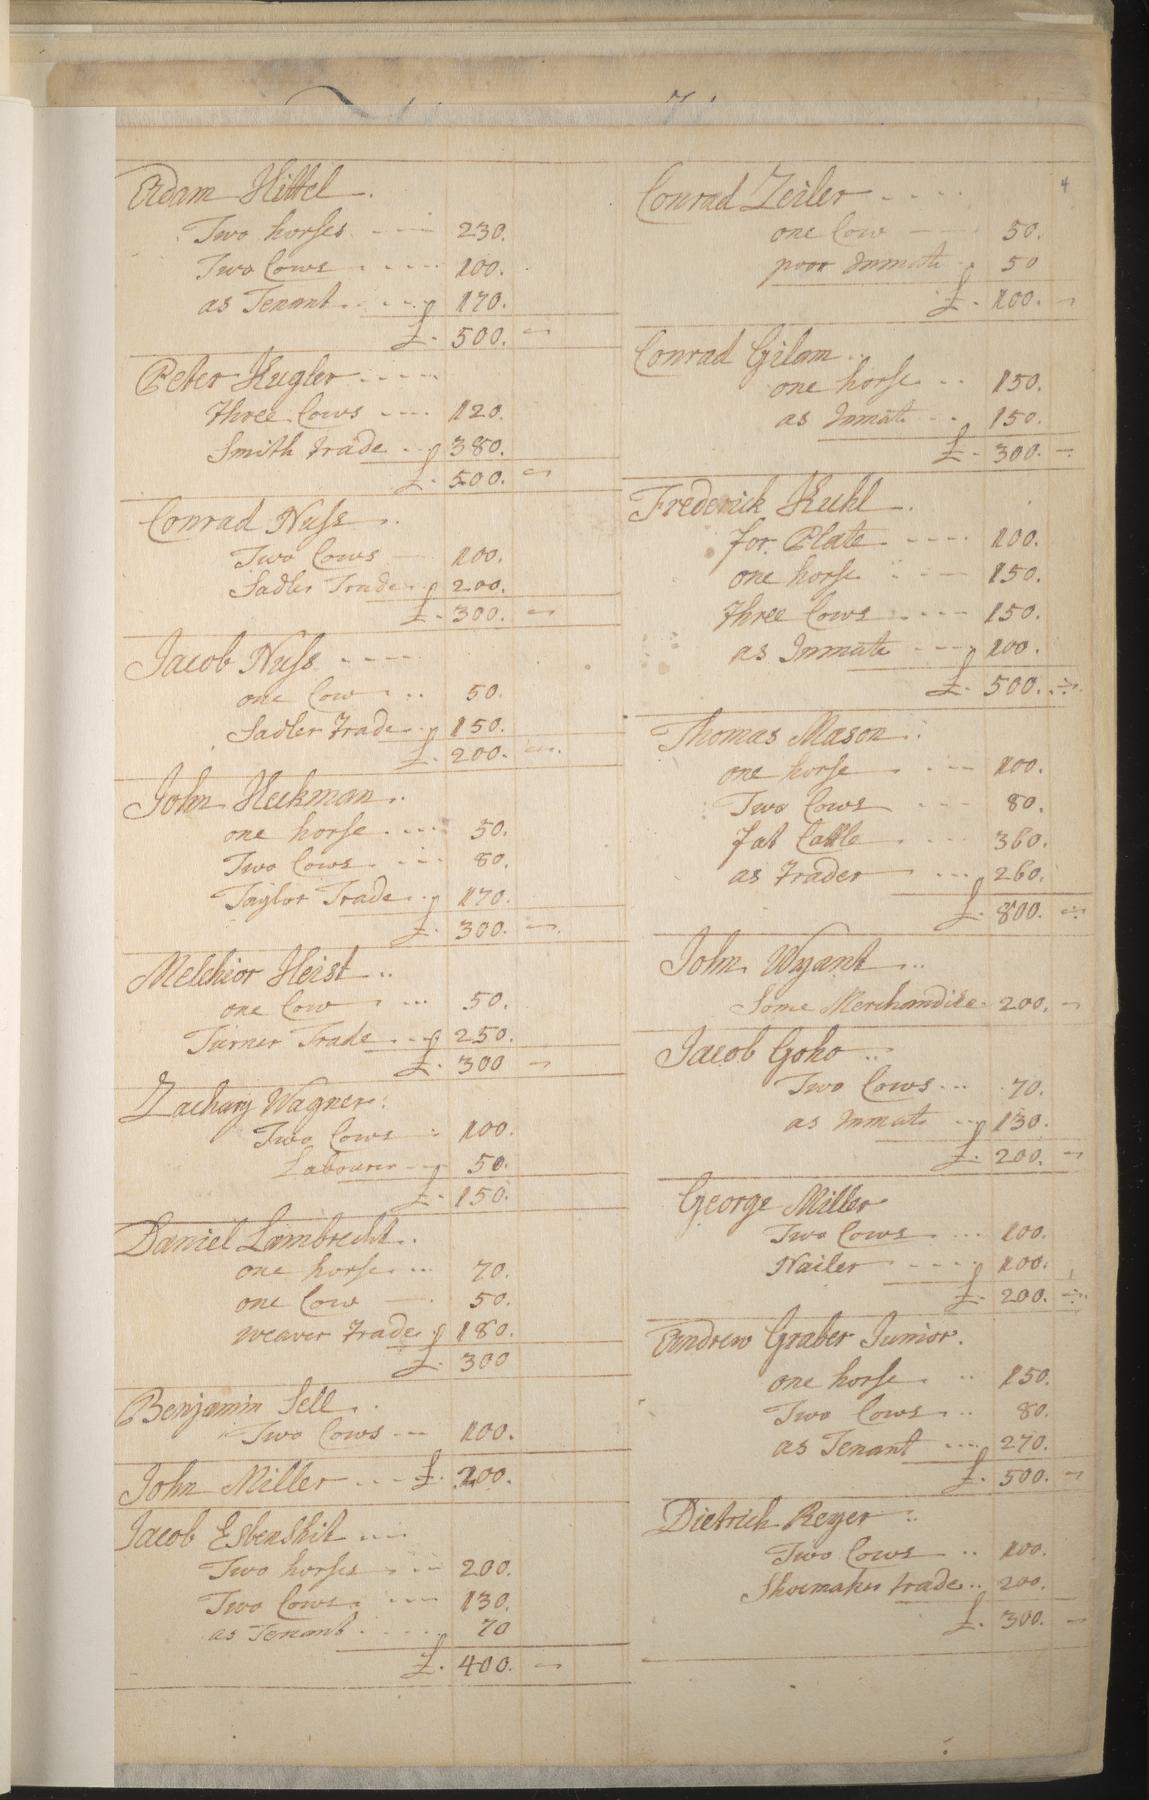 Adam Hittel
Two horses 230.
Two Cows 100.
as Tenant 170.
£. 500.
Peter Kugler
three Cows 120.
Smith trade 380.
£. 500.
Conrad Nuss
Two Cows 100.
Sadler Trade 200.
£. 300.
Jacob Nuss
one Cow 50.
Sadler Trade 150.
£. 200.
John Heckman
one horse 50.
Two Cows 80.
Taylor Trade 170.
£. 300.
Melchior Heist
one Cow 50.
Turner Trade 250.
£. 300
Zachary Wagner
Two Cows 100.
Labourer 50.
£. 150.
Daniel Lambrecht
one horse 70.
one Cow 50.
weaver Trade 180.
£. 300
Benjamin Sell
Two Cows 100.
John Miller £. 200.
Jacob Esbenshit
Two horses 200.
Two Cows 130.
as Tenant 70
£. 400.
4
Conrad Zeiler
one Cow 50.
poor Inmate 50
£. 100.
Conrad Gilam
one horse 150.
as Inmate 150.
£. 300.
Frederick Kuhl
for Plate 100.
one horse 150.
three Cows 150.
as Inmate 100.
£. 500.
Thomas Mason
one horse 100.
Two Cows 80.
fat Cattle 360.
as Trader 260.
£. 800.
John Wyant
Some Merchandise 200.
Jacob Goho
Two Cows 70.
as Inmate 130.
£. 200.
George Miller
Two Cows 100.
Nailer 100.
£. 200.
Andrew Graber Junior.
one horse 150.
Two Cows 80.
as Tenant 270.
£. 500.
Dietrich Reyer
Two Cows 100.
Shoemaker trade 200.
£. 300.